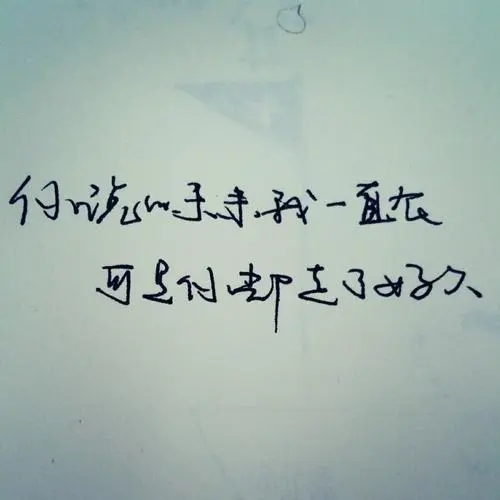 你说我一直在
可是你却走了好久